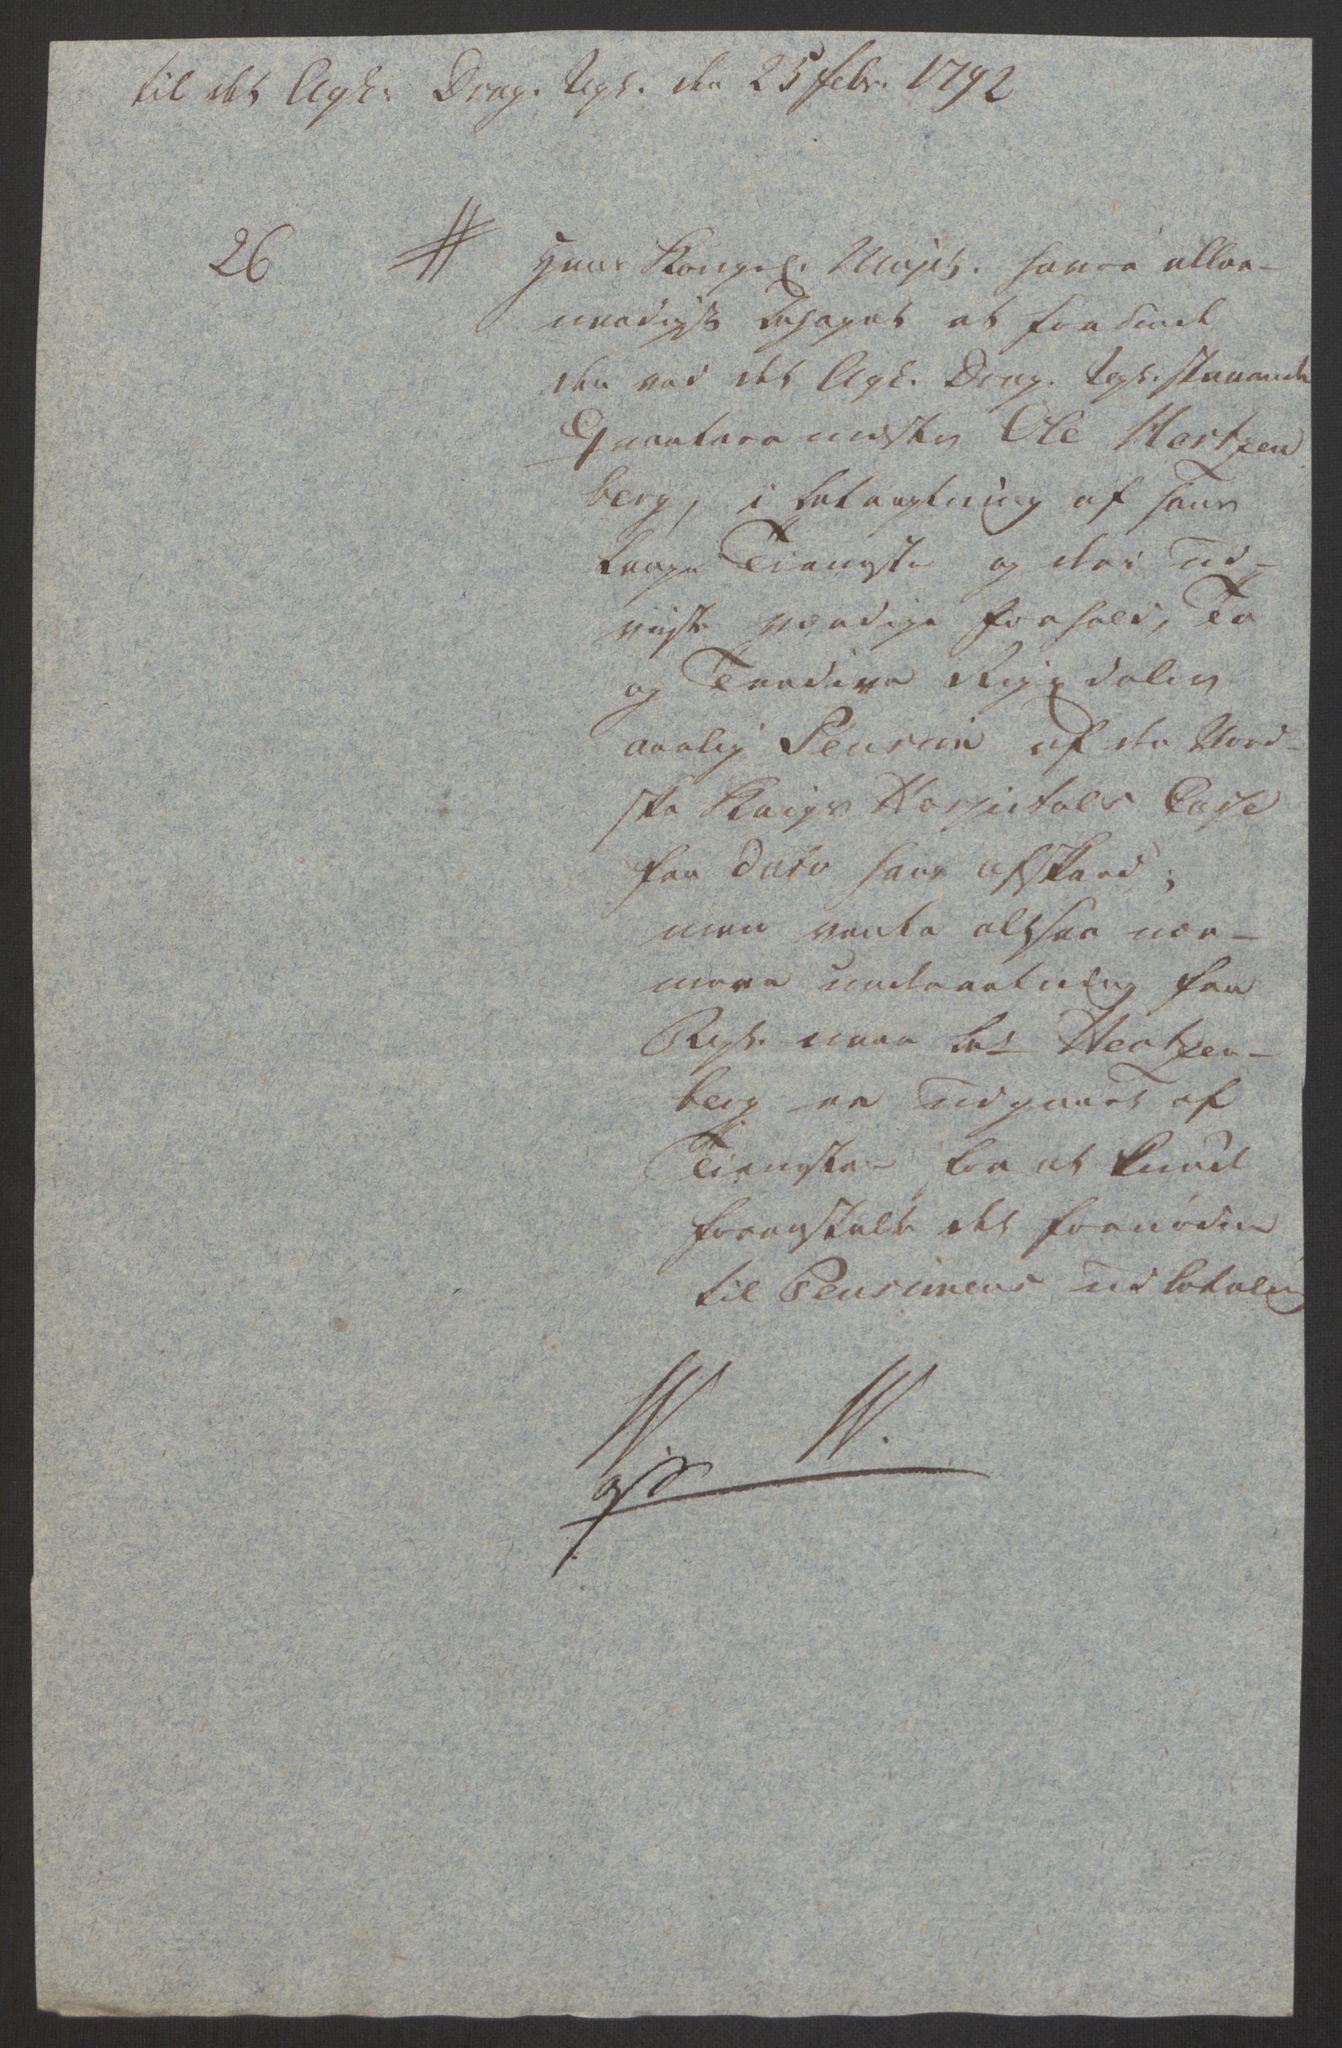 til det Agh: Drag. Rgt. den 25 febr. 1792
26 # Hans Kongel. Mayst. haver aller-
naadigst behaget at forundt
den ved det Agh. Drag. Rgt. staaende
Qvarteermester Ole Hertzen
berg, i betragtning af hans
lange Tieneste og der ud-
viiste værdige forhold, To
og Tredive Rigsdaler
aarlig Pension af den Nord-
ske Krigs Hospitals Casse
fra Dato hans afskeed;
men vente altsaa nær-
mere underretning fra
Rgt. naar Hertzen-
berg er udgaaet af
Tienesten for at kunde
foranstalte det fornødne
til Pensionens udbetaling
W. W.